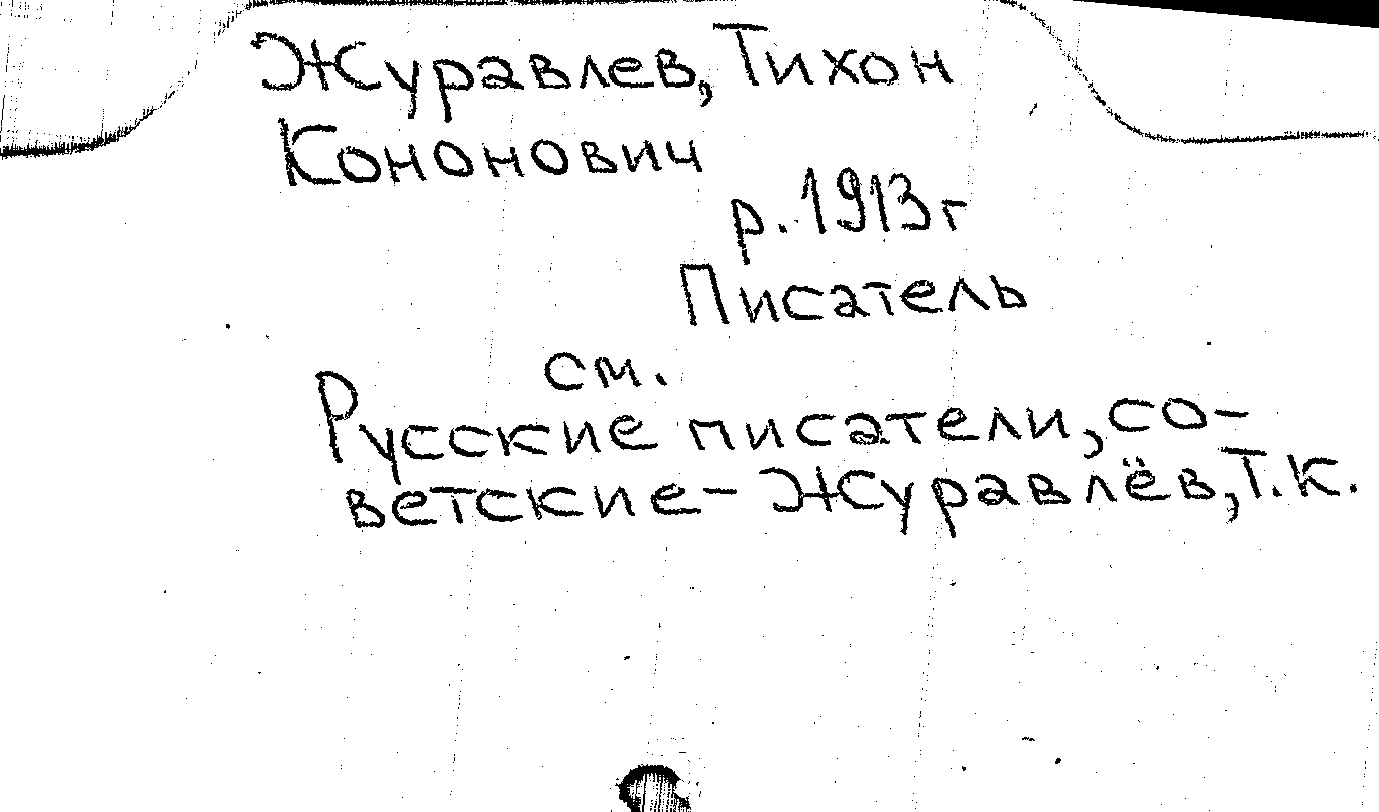 Журавлев, Тихон
Кононович
р. 1913 г
Писатель
см.
Русские писатели, со-
ветские - Журавлёв, Т.К.